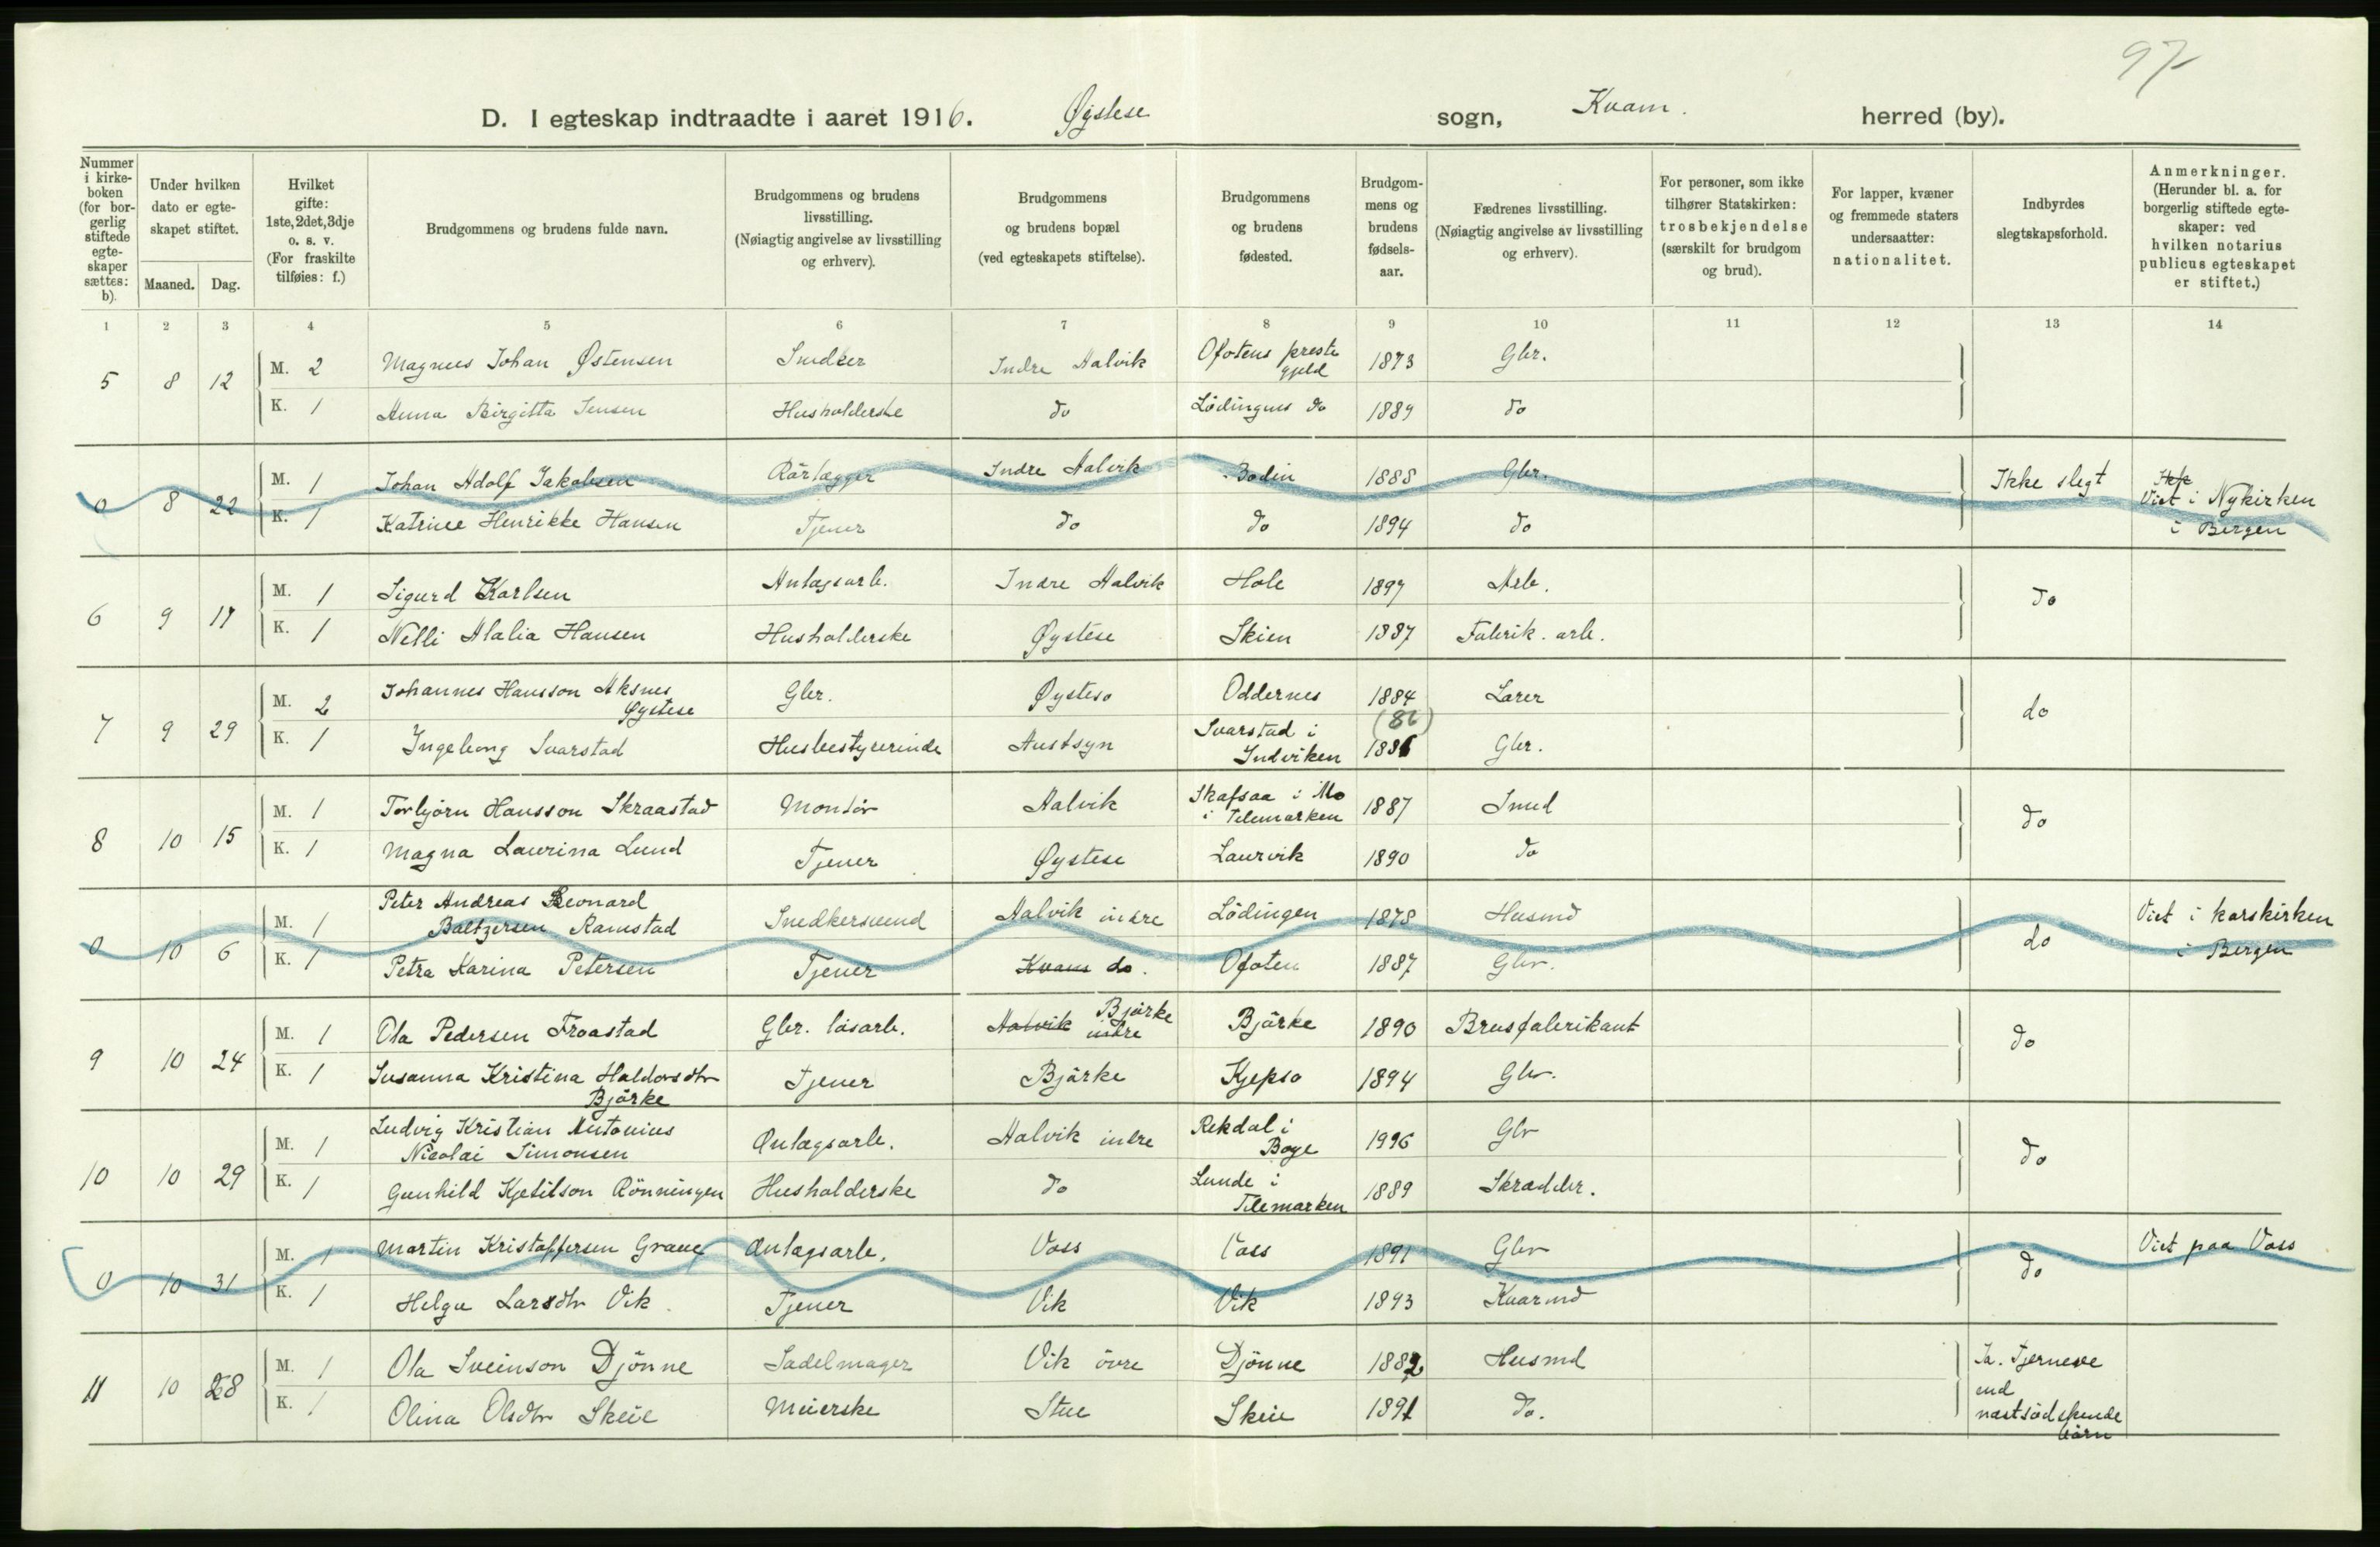 97
D. I egteskap indtraadte i aaret 1916. Øystese sogn, Kvam. herred (by).
Nummer i kirke-boken (for bor-gerlig stiftede egte-skaper sættes: b).
Under hvilken dato er egte-skapet stiftet.
Maaned. Dag.
Hvilket gifte: 1ste, 2det, 3dje o. s. v. (For fraskilte tilføies: f.)
Brudgommens og brudens fulde navn.
Brudgommens og brudens livsstilling. (Nøiagtig angivelse av livsstilling og erhverv).
Brudgommens og brudens bopæl (ved egteskapets stiftelse).
Brudgommens og brudens fødested.
Brudgom-mens og brudens fødsels-aar.
Fædrenes livsstilling. (Nøiagtig angivelse av livsstilling og erhverv).
For personer, som ikke tilhører Statskirken: trosbekjendelse (særskilt for brudgom og brud).
For lapper, kvæner og fremmede staters undersaatter: nationalitet.
Indbyrdes slegtskapsforhold.
Anmerkninger. (Herunder bl. a. for borgerlig stiftede egte-skaper: ved hvilken notarius publicus egteskapet er stiftet.)
1 2 3 4 5 6 7 8 9 10 11 12 13 14
5 8 12 M. 2 Magnus Johan Østensen Snedker Indre Aalvik Ofotens prestegjeld 1873 Gbr.
K. 1 Anna Birgitta Jensen Husholderske do Lödingens do 1889 do
0 8 22 M. 1 Johan Adolf Jakobsen Rörlægger Indre Aalvik Bodin 1888 Gbr. Ikke slegt Viet i Nykirken
K. 1 Katrine Henrikke Hansen Tjener do do 1894 do i Bergen
6 9 17 M. 1 Sigurd Karlsen Anlagsarb. Indre Aalvik Hole 1897 Arb. do
K. 1 Nelli Alalia Hansen Husholderske Øystese Skien 1887 Fabrik. arb.
7 9 29 M. 2 Johannes Hansson Aksnes Øystese Gbr. Øystese Oddernes 1884 Lærer do
(86)
K. 1 Ingeborg Svarstad Husbestyrerinde Austsyn Svarstad i Indviken 1886 Gbr.
8 10 15 M. 1 Torbjörn Hansson Skraastad Montör Aalvik Skafsaa i Mo i Telemarken 1887 Smed do
K. 1 Magna Laurina Lund Tjener Øystese Laurvik 1890 do
0 10 6 M. 1 Peter Andreas Leonard Baltzersen Ramstad Snedkersvend Aalvik indre Lödingen 1878 Husmd do Viet i korskirken
K. 1 Petra Karina Petersen Tjener Kvam do. Ofoten 1887 Gbr. i Bergen
9 10 24 M. 1 Ola Pedersen Froastad Gbr. lösarb. Aalvik indre Björke Bjørke 1890 Brusfabrikant do
K. 1 Susanna Kristina Haldorsdtr Bjørke Tjener Bjørke Kjepso 1894 Gbr.
10 10 29 M. 1 Ludvig Kristian Antonius Nicolai Simonsen Anlagsarb. Aalvik indre Rekdal i Boge 1996 Gbr do
K. 1 Gunhild Kjetilson Rönningen Husholderske do Lunde i Telemarken 1889 Skrædder.
0 10 31 M. 1 Martin Kristoffersen Graue Anlagsarb. Voss Voss 1891 Gbr do Viet paa Voss
K. 1 Helga Larsdtr Vik Tjener Vik Vik 1893 Kvarmd
11 10 28 M. 1 Ola Sveinson Djönne Sadelmager Vik övre Djönne 1882 Husmd Ja. Fjernere end næstsödskendebörn
K. 1 Olina Olsdtr Skeie Meierske Stue Skeie 1891 do.